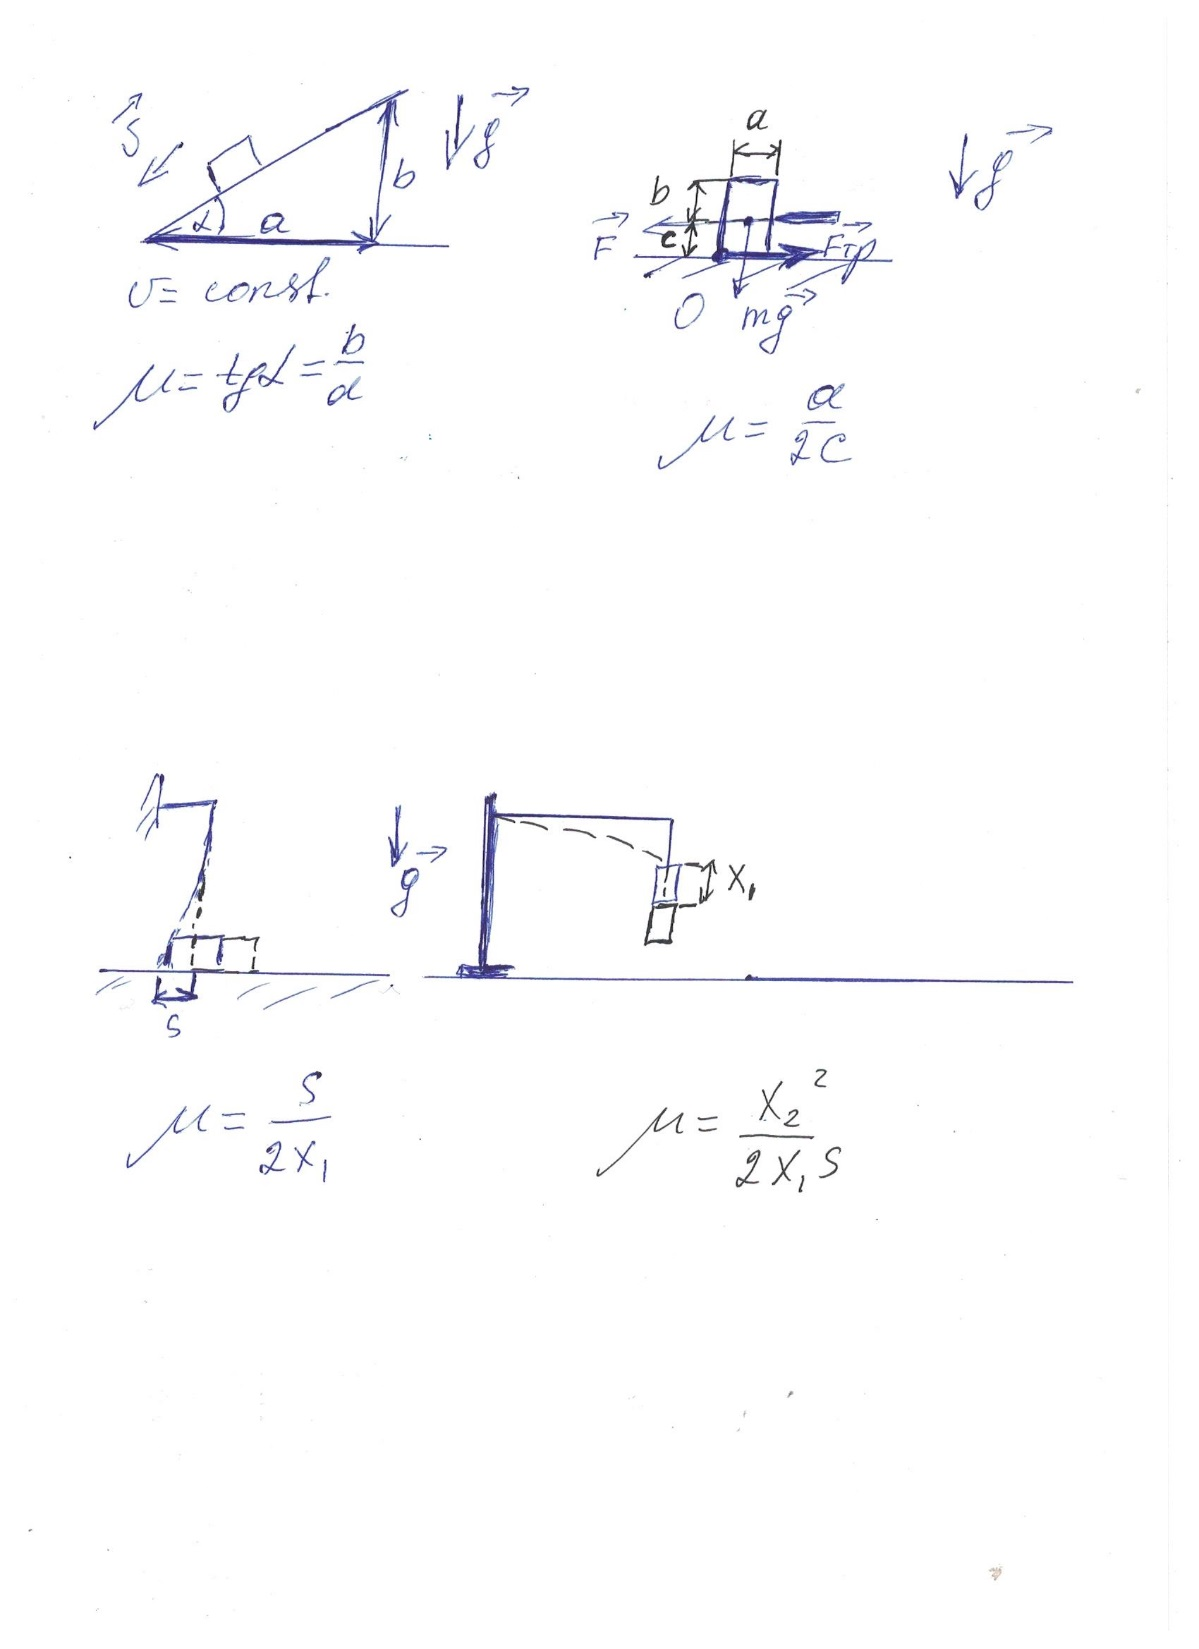 S⃗
α
a
b
g⃗
υ = const.
μ = tgα = b/a
a
b
c
F⃗
Fтр
O
mg⃗
g⃗
μ = a/2c
S
g⃗
x₁
μ = S/2x₁
μ = x₂²/2x₁S